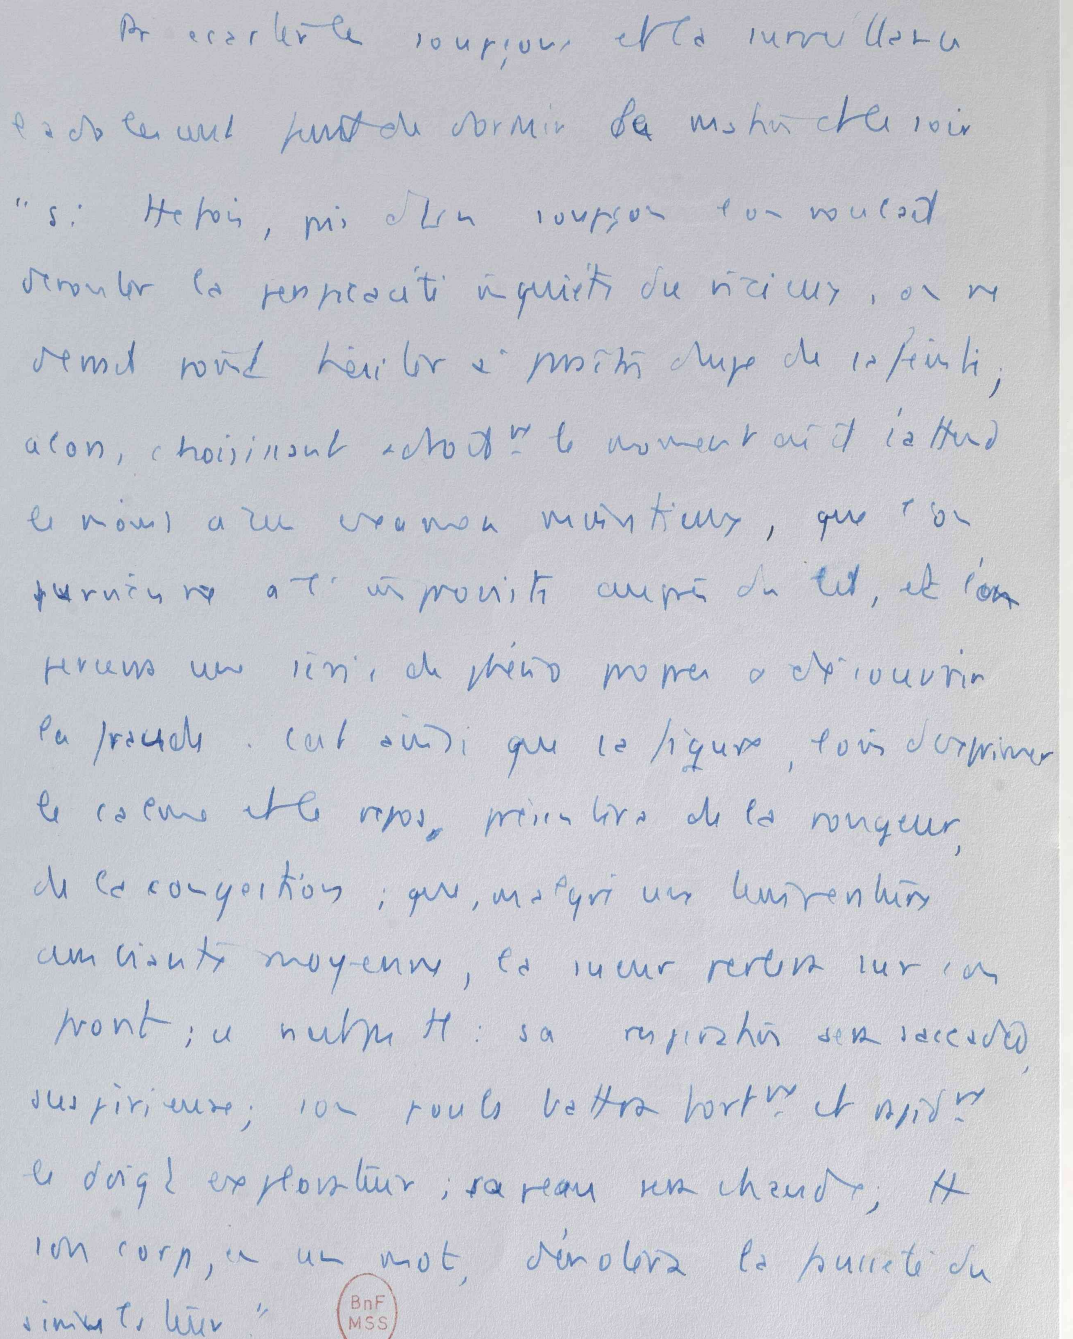 Pr ecarter les soupçons et la surveillance
l'adolescent feint de dormir le matin et le soir
"si toutefois, pris d'un soupçon l'on voulait
dérouter la perspicacité inquiète du vicieux, on ne
devrait point hésiter à paraître dupe de sa feinte;
alors, choisissant adroitmt le moment où il s'attend
le moins à un examen minutieux, que l'on
survienne à l'improviste auprès du lit, et l'on
percevra une série de phéno propres à découvrir
la fraude. C'est ainsi que la figure, loin d'exprimer
le calme et le repos, présentera de la rougeur,
de la congestion; que, malgré une température
ambiante moyenne, la sueur perlera sur son
front; ce n'est pas tt : sa respiration sera saccadée,
suspirieuse; son pouls battra fortmt et rapidmt
le doigt explorateur; sa peau sera chaude; tt
son corps, en un mot, dénotera la fausseté du
simulateur"
BnF
MSS